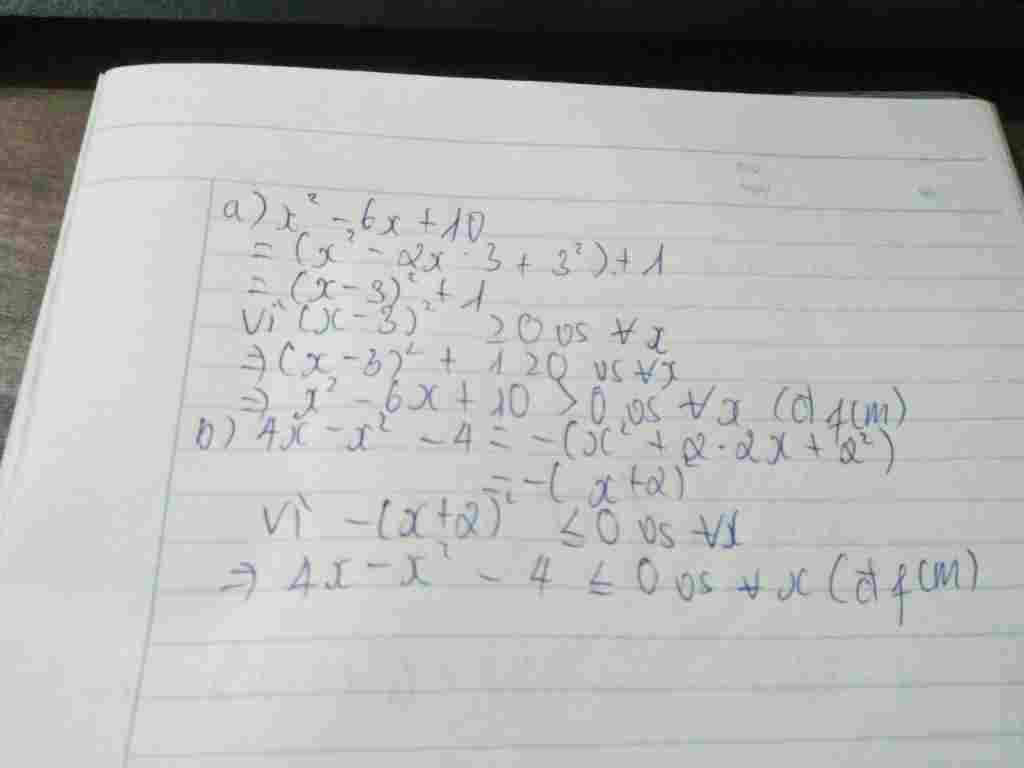 a) x² - 6x + 10
= (x² - 2x · 3 + 3²) + 1
= (x - 3)² + 1
Vì (x - 3)² ≥ 0 vs ∀x
⇒ (x - 3)² + 1 ≥ 0 vs ∀x
⇒ x² - 6x + 10 > 0 vs ∀x (đfcm)
b) 4x - x² - 4 = -(x² + 2·2x + 2²)
= -(x+2)²
Vì -(x+2)² ≤ 0 vs ∀x
⇒ 4x - x² - 4 ≤ 0 vs ∀x (đfcm)